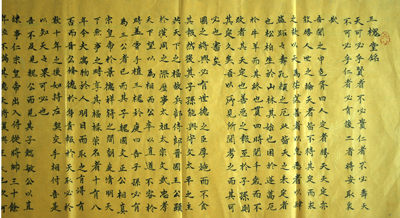 三槐堂銘
天可必乎賢者不必貴仁者不必壽天
不可必乎仁者必有後二者將安取衷哉
吾聞之申包胥曰人定者勝天天定亦
能勝人世之論天者皆不待其定而求
之故以天為茫茫善者以怠惡者以肆
盜跖之壽孔顏之厄此皆天之未定者
也松柏生於山林其始也困於蓬蒿厄
於牛羊而其終也貫四時閱千歲而不
改者其天定也善惡之報至於子孫則
其定久矣吾以所見所聞考之而其可
必也審矣
國之將興必有世德之臣厚施而不食
其報然後其子孫能與守文太平之主
共天下之福故兵部侍郎晉國王公顯
於漢周之際歷事太祖太宗文武忠孝
天下望以為相而公卒以直道不容於
時蓋嘗手植三槐於庭曰吾子孫必有
為三公者已而其子魏國文正公相真
宗皇帝於景德祥符之間朝廷清明天
下無事之時享其福祿榮名者十有八
年今夫寓物於人明日而取之有得有
否而晉公修德於身責報於天取必於
數十年之後如持左契交手相付吾是
以知天之果可必也
吾不及見魏公而見其子懿敏公以直
諫事仁宗皇帝出入侍從將帥三十餘
年位不滿其德天將復興王氏也歟